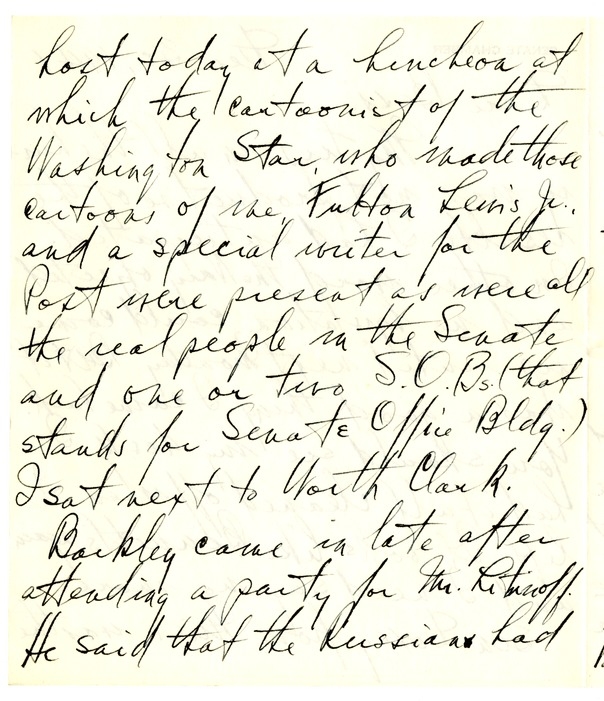 host today at a luncheon at
which the cartoonist of the
Washington Star, who made those
cartoons of me, Fulton Lewis Jr.,
and a special writer for the
Post were present as were all
the real people in the Senate
and one or two S.O.Bs. (that
stands for Senate Office Bldg.)
I sat next to Worth Clark.
Barkley came in late after
attending a party for Mr. Litinoff.
He said that the Russians had